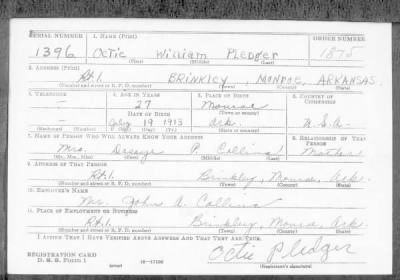 SERIAL NUMBER 1. NAME (Print) ORDER NUMBER
1396 Octie William Pledger 1875
(First) (Middle) (Last)
2. ADDRESS (Print)
Rt. 1. BRINKLEY, MONROE, ARKANSAS.
(Number and street or R. F. D. number) (Town) (County) (State)
3. TELEPHONE 4. AGE IN YEARS 5. PLACE OF BIRTH 6. COUNTRY OF CITIZENSHIP
— 27 Monroe
(Town or county)
DATE OF BIRTH
— July 19 1913 Ark. U.S.A.
(Exchange) (Number) (Mo.) (Day) (Yr.) (State or country)
7. NAME OF PERSON WHO WILL ALWAYS KNOW YOUR ADDRESS 8. RELATIONSHIP OF THAT PERSON
Mrs. P. Collins Mother
(Mr., Mrs., Miss) (First) (Middle) (Last)
9. ADDRESS OF THAT PERSON
Rt. 1. Brinkley, Monroe, Ark.
(Number and street or R. F. D. number) (Town) (County) (State)
10. EMPLOYER'S NAME
Mr. John A. Collins
11. PLACE OF EMPLOYMENT OR BUSINESS
Rt. 1. Brinkley, Monroe, Ark.
(Number and street or R. F. D. number) (Town) (County) (State)
I AFFIRM THAT I HAVE VERIFIED ABOVE ANSWERS AND THAT THEY ARE TRUE.
REGISTRATION CARD
D. S. S. Form 1 Octie Pledger
(over) (Registrant's signature)